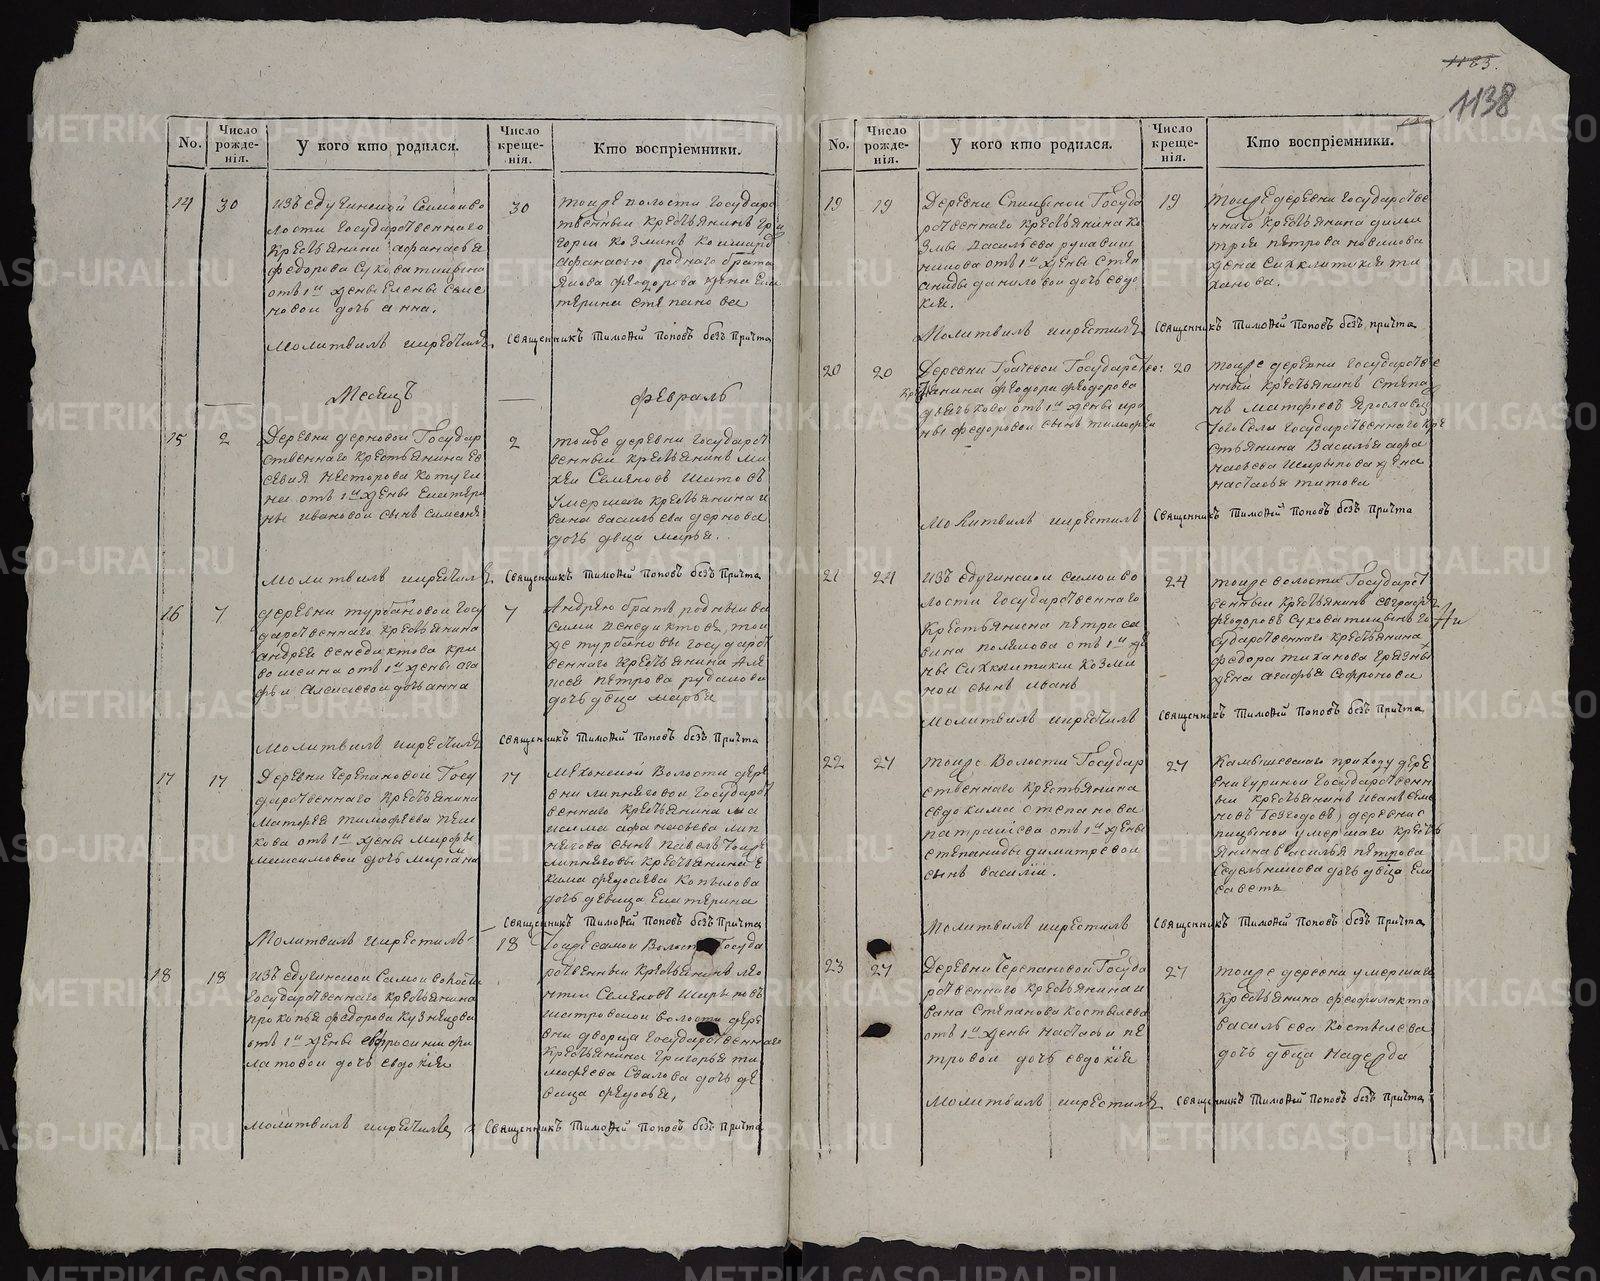 1138
No.
Число рожде-нія.
У кого кто родился.
Число креще-нія.
Кто воспріемники.
14
30
изъ едугинской самои во
лости государственнаго
крестьянина афанасья
федорова
отъ 1й жены елены
дочь анна.
30
тоиже волости государс
твенныи крестьянинъ гри
гории козминъ
афанасью роднаго брата
федорова жена ека
терина степанова
молитвилъ икрестилъ
священникъ Тимоѳей Поповъ безъ причта
Месяцъ
февраль
15
2
Деревни дерновои Государ
ственнаго крестьянина ев
севия нестерова
на отъ 1й жены екатери
ны ивановои сынъ симеонъ
2
тоиже деревни государст
венныи крестьянинъ ми
хеи семеновъ шитовъ
умершаго крестьянина и
вана васильева дернова
дочь двца марья.
молитвилъ икрестилъ
священникъ Тимоѳей Поповъ безъ Причта
16
7
деревни турбановои госу
дарственнаго крестьянина
андрея венедиктова кри
отъ 1й жены ага
фьи алексеевои дочь анна
7
Андрею братъ родныи ва
силии венедиктовъ, тои
же турбановы государст
веннаго крестьянина але
ксея петрова рудакова
дочь двца марья
молитвилъ икрестилъ
священникъ Тимоѳей Поповъ безъ Причта
17
17
Деревни Черепановои Госу
дарственнаго крестьянина
матфея тимофеева
кова отъ 1й жены марфы
максимовои дочь мариана
17
Мехонскои Волости дере
вни липняговои государст
веннаго крестьянина ма
ксима афанасьева лип
нягова сынъ павелъ тоиже
липняговы крестьянина е
кима федосеева копылова
дочь девица екатерина
Молитвилъ икрестилъ
священникъ Тимоѳей Поповъ безъ Причта
18
18
изъ едугинскои самои волости
государственнаго крестьянина
прокопья федорова кузнецова
отъ 1й жены евфросинии фи
латовои дочь евдокия
18
тоиже самои Волости Госуда
рственныи крестьянинъ лео
нтии Семеновъ Ширыповъ
шатровскои волости дере
вни дворца государственнаго
крестьянина григорья ти
мофеева Свалова дочь де
вица федосья,
молитвилъ икрестилъ
священникъ Тимоѳей Поповъ безъ Причта
1138
No.
Число рожде-нія.
У кого кто родился.
Число креще-нія.
Кто воспріемники.
19
19
Деревни Спицынои Госуда
рственнаго крестьянина ко
змы Васильева рукавиш
никова отъ 1й жены степ
аниды даниловои дочь евдо
кия.
19
тоиже деревни государстве
ннаго крестьянина дими
трия петрова новикова
жена синклитикия ти
ханова.
Молитвилъ икрестилъ
священникъ Тимоѳей Поповъ безъ причта
20
20
Деревни Грачевои Государствен:
крестьянина феодора феодорова
дьячкова отъ 1й жены ири
ны федоровои сынъ тимофеи
20
тоиже деревни государстве
нныи крестьянинъ степа
нъ матфеевъ Ярославц
тогоСела государственнаго кре
стьянина Василья афа
насьева Ширыпова жена
настасья титова
молитвилъ икрестилъ
священникъ Тимоѳей Поповъ безъ Причта
21
24
изъ едугинскои самои во
лости государственнаго
Крестьянина петра са
вина полякова отъ 1й же
ны синклитикии козми
нои сынъ иванъ
24
тоиже волости Государст
венныи крестьянинъ евграфъ
феодоровъ го
сударственнаго крестьянина
федора тиханова грязны
жена агафья софронова
молитвилъ икрестилъ
священникъ Тимоѳей Поповъ безъ Причта
22
27
тоиже Волости Государ
ственнаго крестьянина
евдокима степанова
патракеева отъ 1й жены
степаниды димитревои
сынъ василии.
27
Камышевскаго приходу дере
вни буринои государственн
ыи крестьянинъ иванъ семе
новъ безгодовъ, деревни с
пицынои умершаго кресть
янина василья петрова
Седельникова дочь двица ели
саветъ
молитвилъ икрестилъ
священникъ Тимоѳей Поповъ безъ Причта
23
27
Деревни Черепановои Госуда
рственнаго крестьянина и
вана Степанова Костылева
отъ 1й жены настасьи пе
тровои дочь евдокия
27
тоиже деревни умершаго
крестьянина феофилакта
васильева Костылева
дочь двца надежда
молитвилъ икрестилъ
священникъ Тимоѳей Поповъ безъ Причта
METRIKI.GASO-URAL.RU